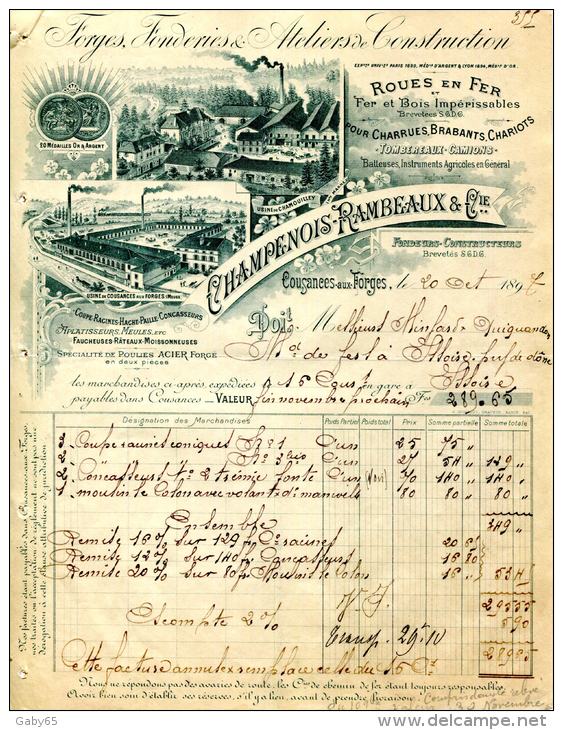 355
Forges, Fonderies & Ateliers de Construction
EXPon UNIVlle PARIS 1889, MÉDle D'ARGENT & LYON 1894, MÉDle D'OR.
ROUES EN FER
ET
Fer et Bois Impérissables
Brevetées S.G.D.G.
POUR CHARRUES, BRABANTS, CHARIOTS
TOMBEREAUX - CAMIONS
Batteuses, Instruments Agricoles en Général
20 MÉDAILLES OR & ARGENT
USINE DE CHAMOUILLEY
USINE DE COUSANCES AUX FORGES (MEUSE)
CHAMPENOIS-RAMBEAUX & CIE
FONDEURS-CONSTRUCTEURS
Brevetés S.G.D.G.
Cousances-aux-Forges, le 20 Oct 1897
COUPE-RACINES-HACHE-PAILLE, CONCASSEURS
APLATISSEURS, MEULES, ETC
FAUCHEUSES-RÂTEAUX-MOISSONNEUSES
SPÉCIALITÉ DE POULIES ACIER FORGÉ
en deux pièces
Doit Messieurs
Md de fer à Issoire puy de dôme
les marchandises ci-après, expédiées en gare à Issoire
payables dans Cousances VALEUR fin novembre prochain Fcs 289.65
Désignation des Marchandises Poids Partiel Poids total Prix Somme partielle Somme totale
3 Coupe racines coniques No 1 l'un 25 75 "
2 " No 3 l'un 27 54 " 129 "
2 Concasseurs No 2 fonte l'un 70 140 " 140 "
1 moulin le Colon avec volant 80 80 " 80 "
Ensemble 349 "
Remise 16% sur 129 20 65
Remise 12% sur 140 Concasseurs 16 80
Remise 20% sur 80 Moulin le Colon 16 " 53 45
295 55
Escompte 2% 5 90
289 65
Cette facture annule & remplace celle du 15 Ct
Nous ne répondons pas des avaries de route, les Cies de chemin de fer étant toujours responsables.
Avoir bien soin d'établir ses réserves, s'il y a lieu, avant de prendre livraison.
Novembre
Nos factures étant payables dans Cousances-aux-Forges,
nos traites ou l'acceptation de règlement ne sont pas une
dérogation à cette clause attributive de juridiction.
Gaby65
delcampe.net